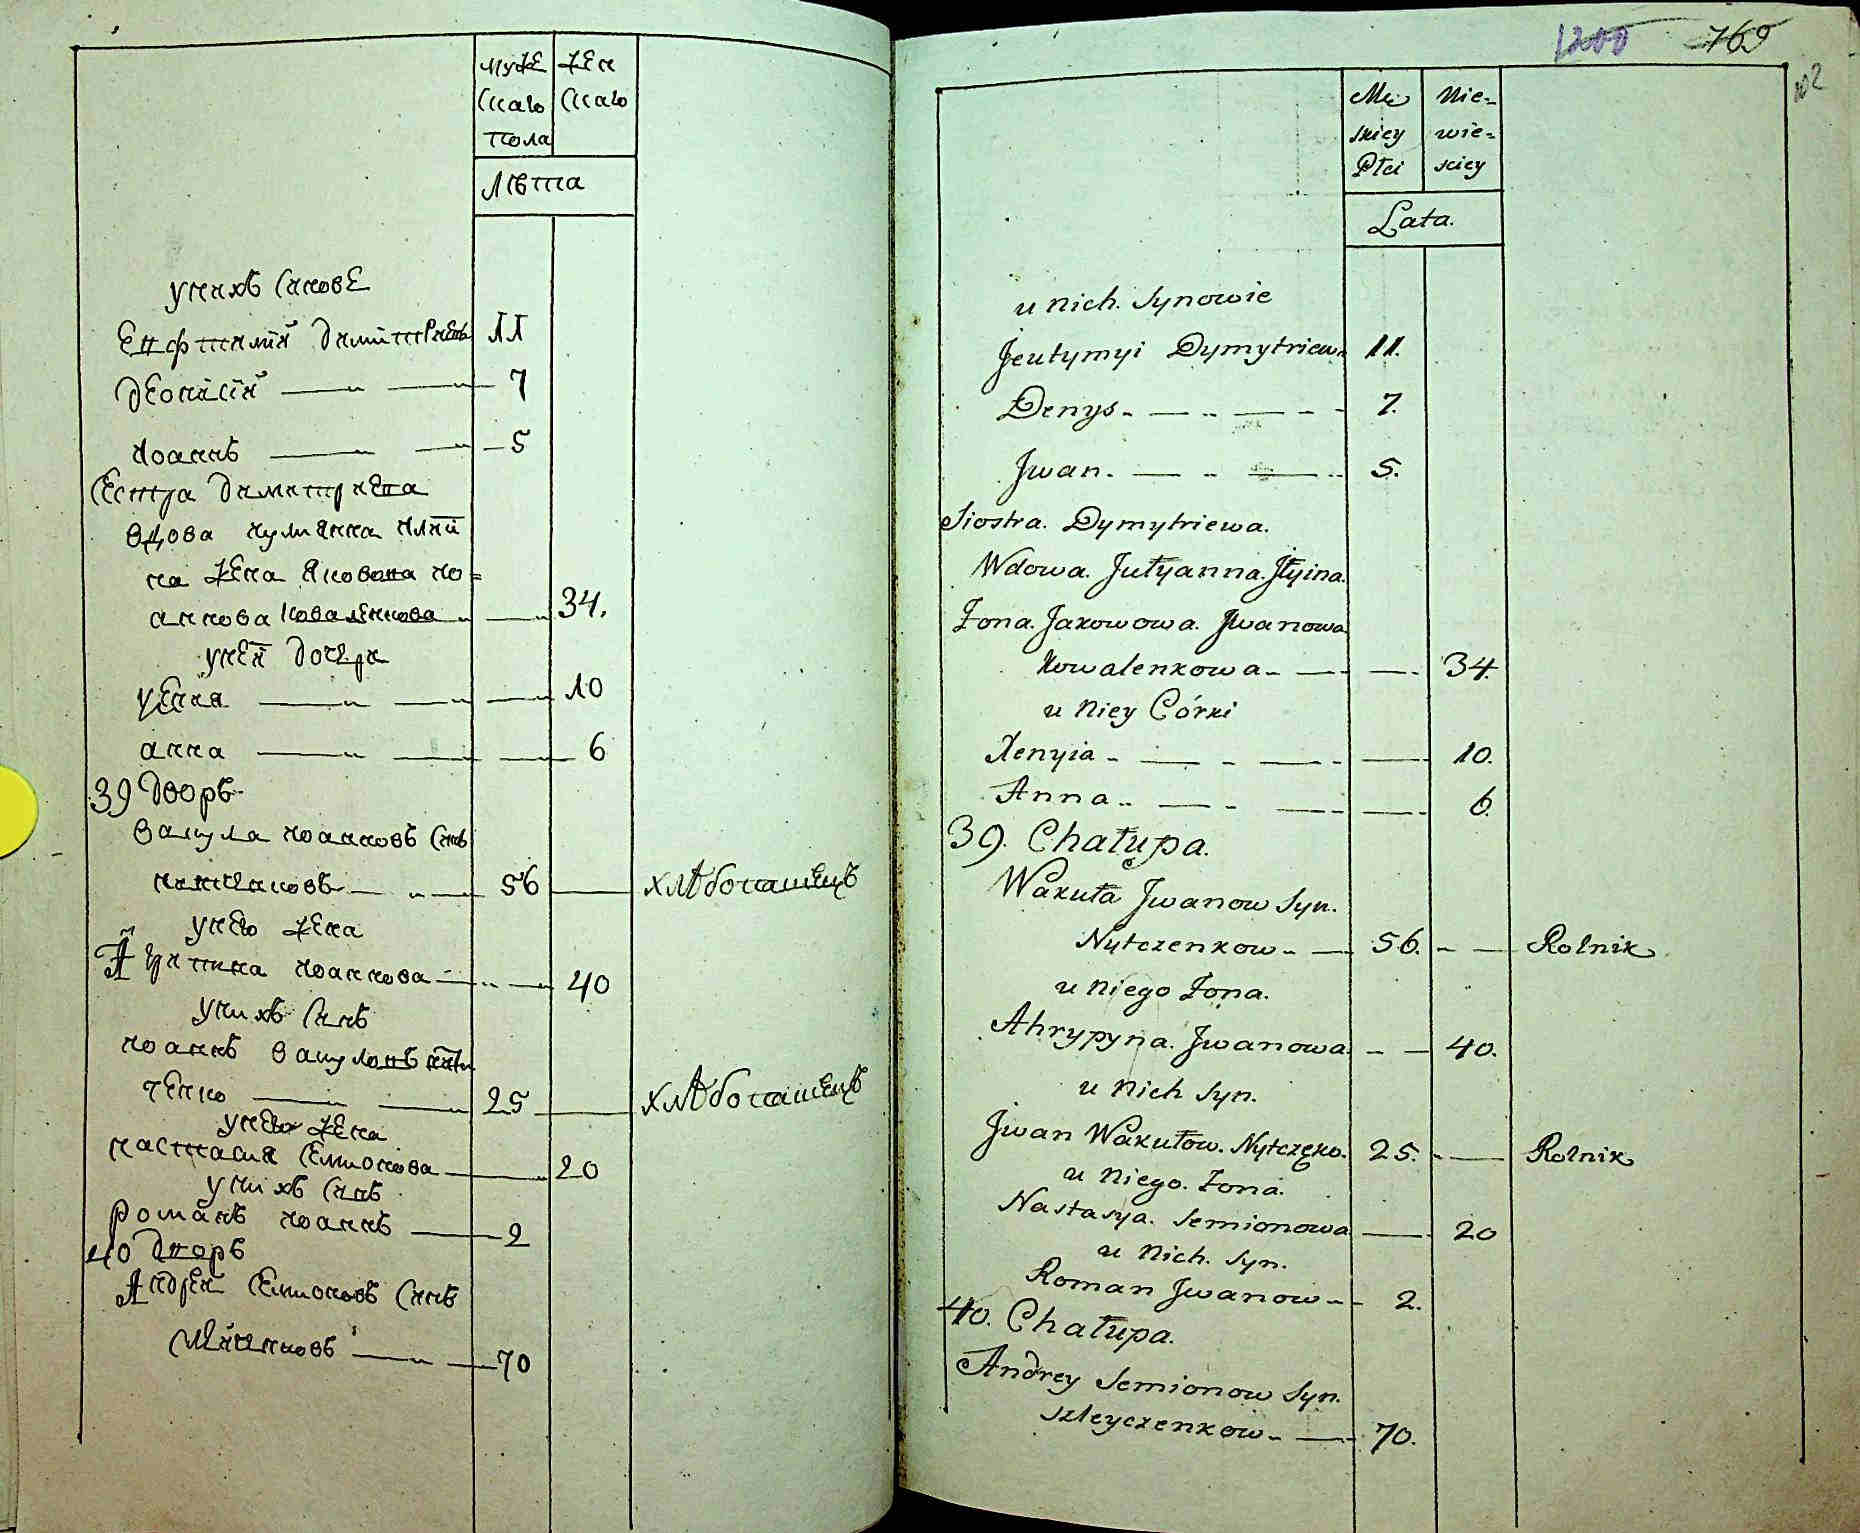 муже
скаго
пола
жен
скаго
лѣта
у нихъ сынове
Евфтимій Димитриевъ 11
Деонисій 7
Иоаннъ 5
Сестра Димитриева
вдова Иулиянна Илии
на жена Яковова Ио=
аннова Коваленкова 34.
у ней дочери
Ксения 10
анна 6
39 Дворъ
Вакула Иоанновъ сынъ
56 хлѣбопашецъ
у него жена
Агрипина Иоаннова 40
у нихъ сынъ
Иоаннъ Вакуловъ
ченко 25 хлѣбопашецъ
у него жена
Настасия Семионова 20
у нихъ сынъ
Романъ Иоаннъ 2
40 Дворъ
Андрей Семионовъ сынъ
70
1200 769
102
Mę
skiey
Płci
Nie-
wie-
sciey
Lata.
u nich. Synowie
Jeutymyi Dymytriew. 11.
Denys 7.
Jwan. 5.
Siostra. Dymytriewa.
Wdowa. Jułyanna. Jłyina.
Żona. Jakowowa. Jwanowa
Kowalenkowa 34.
u Niey Córki
Xenyia 10.
Anna 6.
39. Chałupa.
Wakuła Jwanow Syn.
Nytczenkow 56. Rolnik
u Niego Żona.
Ahrypyna. Jwanowa. 40.
u Nich Syn.
Jwan Wakułow. Nytczęko. 25. Rolnik
u Niego. Żona.
Nastasya. Semionowa 20
u Nich. Syn.
Roman Jwanow 2.
40. Chałupa.
Andrey Semionow Syn.
Szleyczenkow 70.